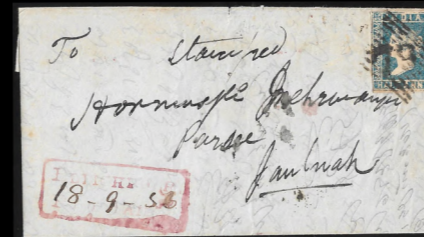 INDIA
To Stamped
Hormusjee Meherwanjee
Parsee
Jaulnah
18-9-56